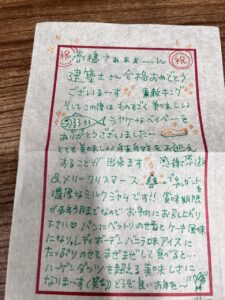 祝 祝
高穂さぁぁぁーーん
建築士さん合格おめでとう
ございまーーす
そしてこの度はものすごく美味しい
シャケなベイベーを
ありがとうございました…
とても美味しい年末年始をお迎え
することが出来ます 感謝感激
&メリークリスマース のプレゼント
濃厚なミルクジャムです!! 賞味期限
が来年1月までなので お早めにお召し上がり
下さい♡ パンにペットリのせ普とケーキ風味
になりレディボーデンバニラ味アイスに
たっぷりのせてまぜまぜして食べると…
ハーゲンダッツを超える美味しさに
なりまーす(笑) どうぞ良いお年を〜♪